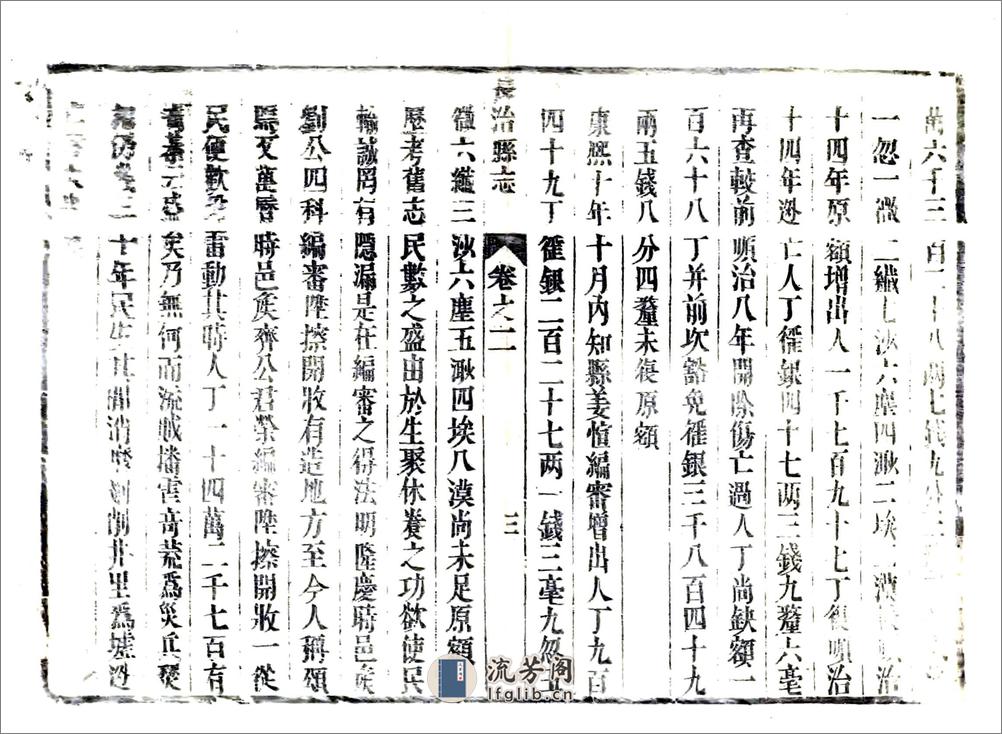 萬六千三百二十八兩七錢九分三
一忽一微二纖七沙六塵四渺二埃二漠 順治
十四年原額增出人一千七百九十七丁復順治
十四年逃亡人丁徭銀四十七两三錢九釐六毫
再查較前順治八年開除傷亡過人丁尚缺額一
百六十八丁并前次豁免徭銀三千八百四十九
兩五錢八分四釐未復原額
康熙十年十月內知縣姜愼編審增出人丁九百
四十九丁徭銀二百二十七两一錢三毫九忽五
長治縣志
卷之二
三
微六纖三沙六塵五渺四埃八漠尚未足原額
歷考舊志民數之盛由於生聚休養之功欲使民
輸誠罔有隱漏是在編審之得法明隆慶時邑矦
劉公四科編審陞擦開收有造地方至今人稱頌
焉及萬曆時邑矦齊公君榮編審陞擦開收一從
民便歡聲雷動其時人丁一十四萬二千七百有
奇蓁 矣乃無何而流賊播害奇荒爲災兵燹
十年民生其間消磨剥削井里爲墟逃
流芳阁
lfglib.cn